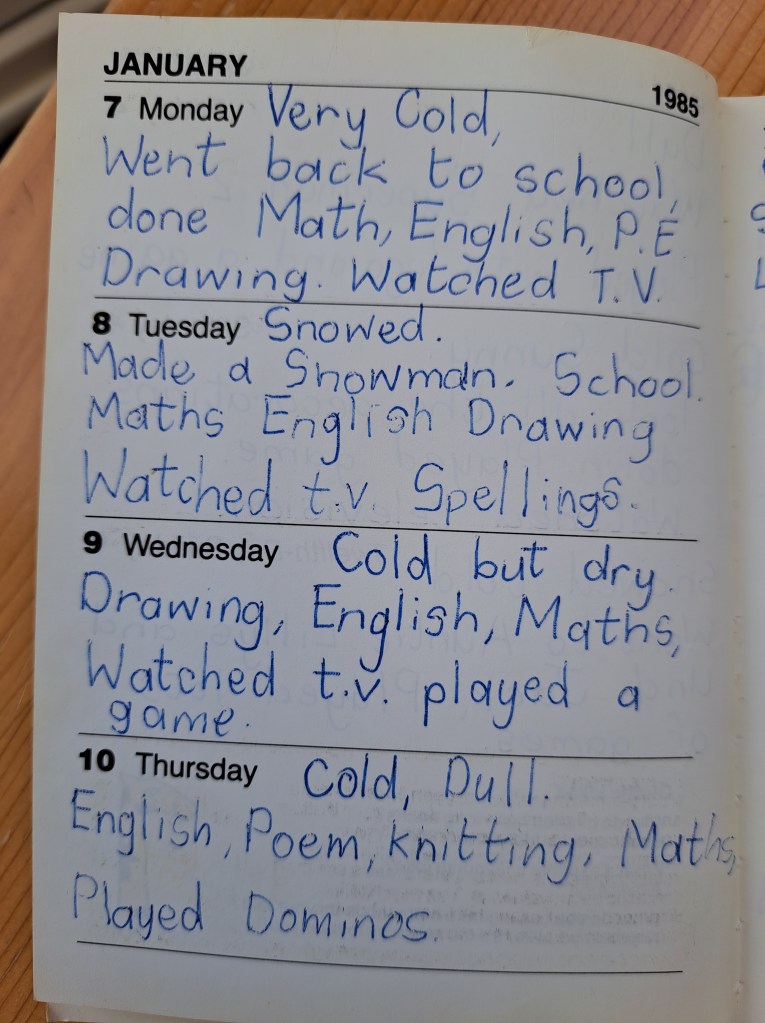 JANUARY 1985
7 Monday Very Cold,
Went back to school,
done Math, English, P.E
Drawing. Watched T.V.
8 Tuesday Snowed.
Made a Snowman. School.
Maths English Drawing
Watched t.v. Spellings.
9 Wednesday Cold but dry.
Drawing, English, Maths,
Watched t.v. played a
game.
10 Thursday Cold, Dull.
English, Poem, knitting, Maths,
Played Dominos.